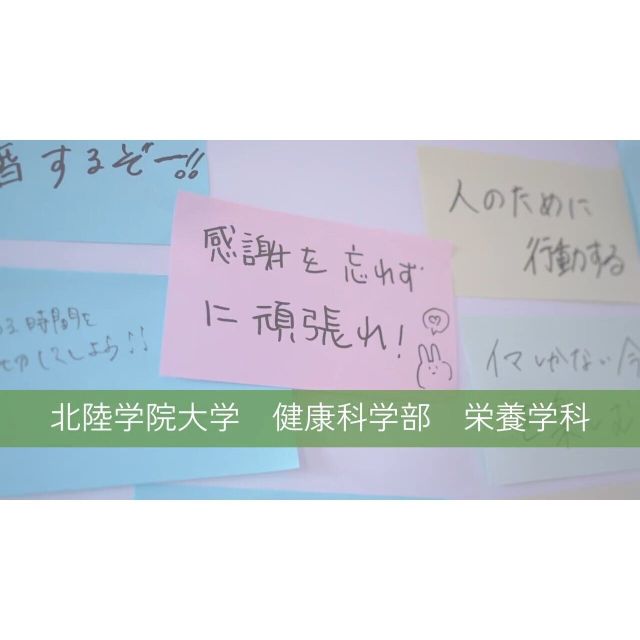 するぞー!!
人のために
行動する
感謝を忘れず
に頑張れ!
時間を
しましょう!!
イマしかない今
北陸学院大学　健康科学部　栄養学科